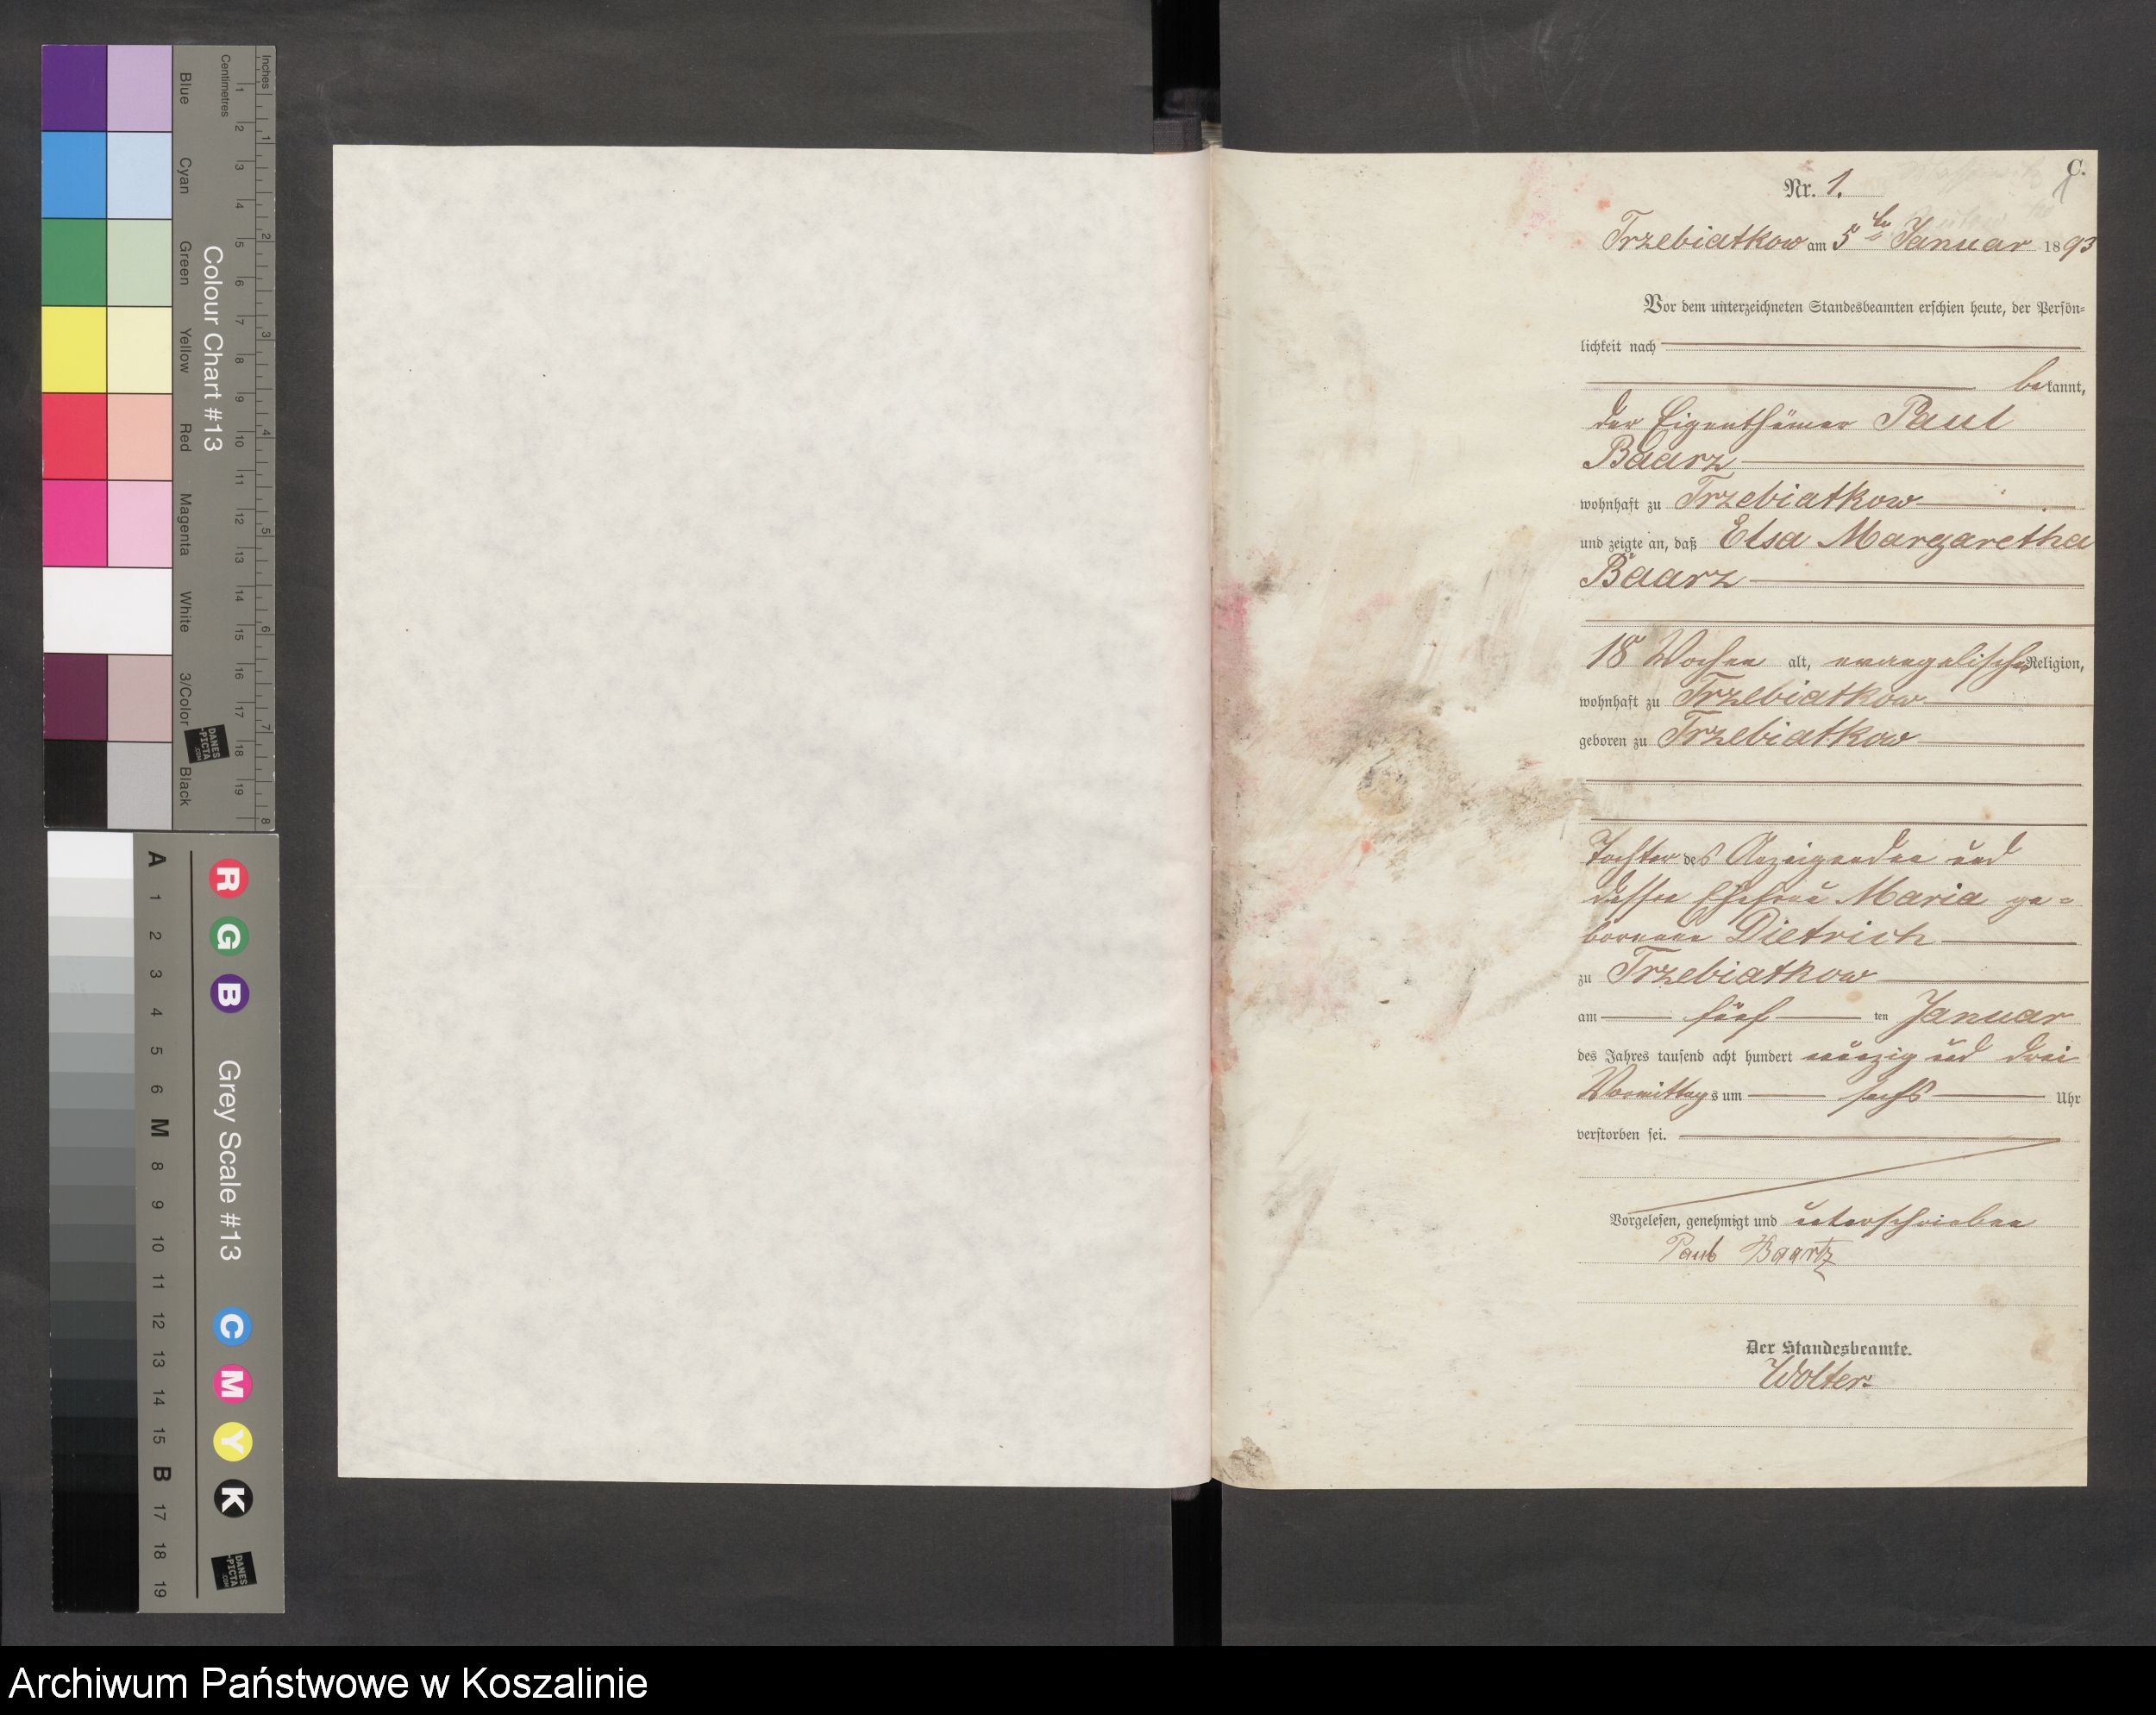 Inches
Centimetres
1 2 3 4 5 6 7 8
1 2 3 4 5 6 7 8 9 10 11 12 13 14 15 16 17 18 19
Colour Chart #13
Blue
Cyan
Green
Yellow
Red
Magenta
White
3/Color
Black
DANES
-PICTA
.COM
R G B
Grey Scale #13
C M Y K
A 1 2 3 4 5 6 M 8 9 10 11 12 13 14 15 B 17 18 19
DANES
-PICTA
.COM
C.
Nr. 1.
Trzebiatkow am 5ten Januar 1893
Vor dem unterzeichneten Standesbeamten erschien heute, der Persön-
lichkeit nach
bekannt,
der Eigenthümer Paul
Baarz
wohnhaft zu Trzebiatkow
und zeigte an, daß Elsa Margaretha
Baarz
18 Wochen alt, evangelischer Religion,
wohnhaft zu Trzebiatkow
geboren zu Trzebiatkow
Tochter des Anzeigenden und
dessen Ehefrau Maria ge=
borenen Dietrich
zu Trzebiatkow
am fünf ten Januar
des Jahres tausend acht hundert neunzig und drei
Vormittags um sechs Uhr
verstorben sei.
Vorgelesen, genehmigt und unterschrieben
Paul Baartz
Der Standesbeamte.
Wolter.
Archiwum Państwowe w Koszalinie